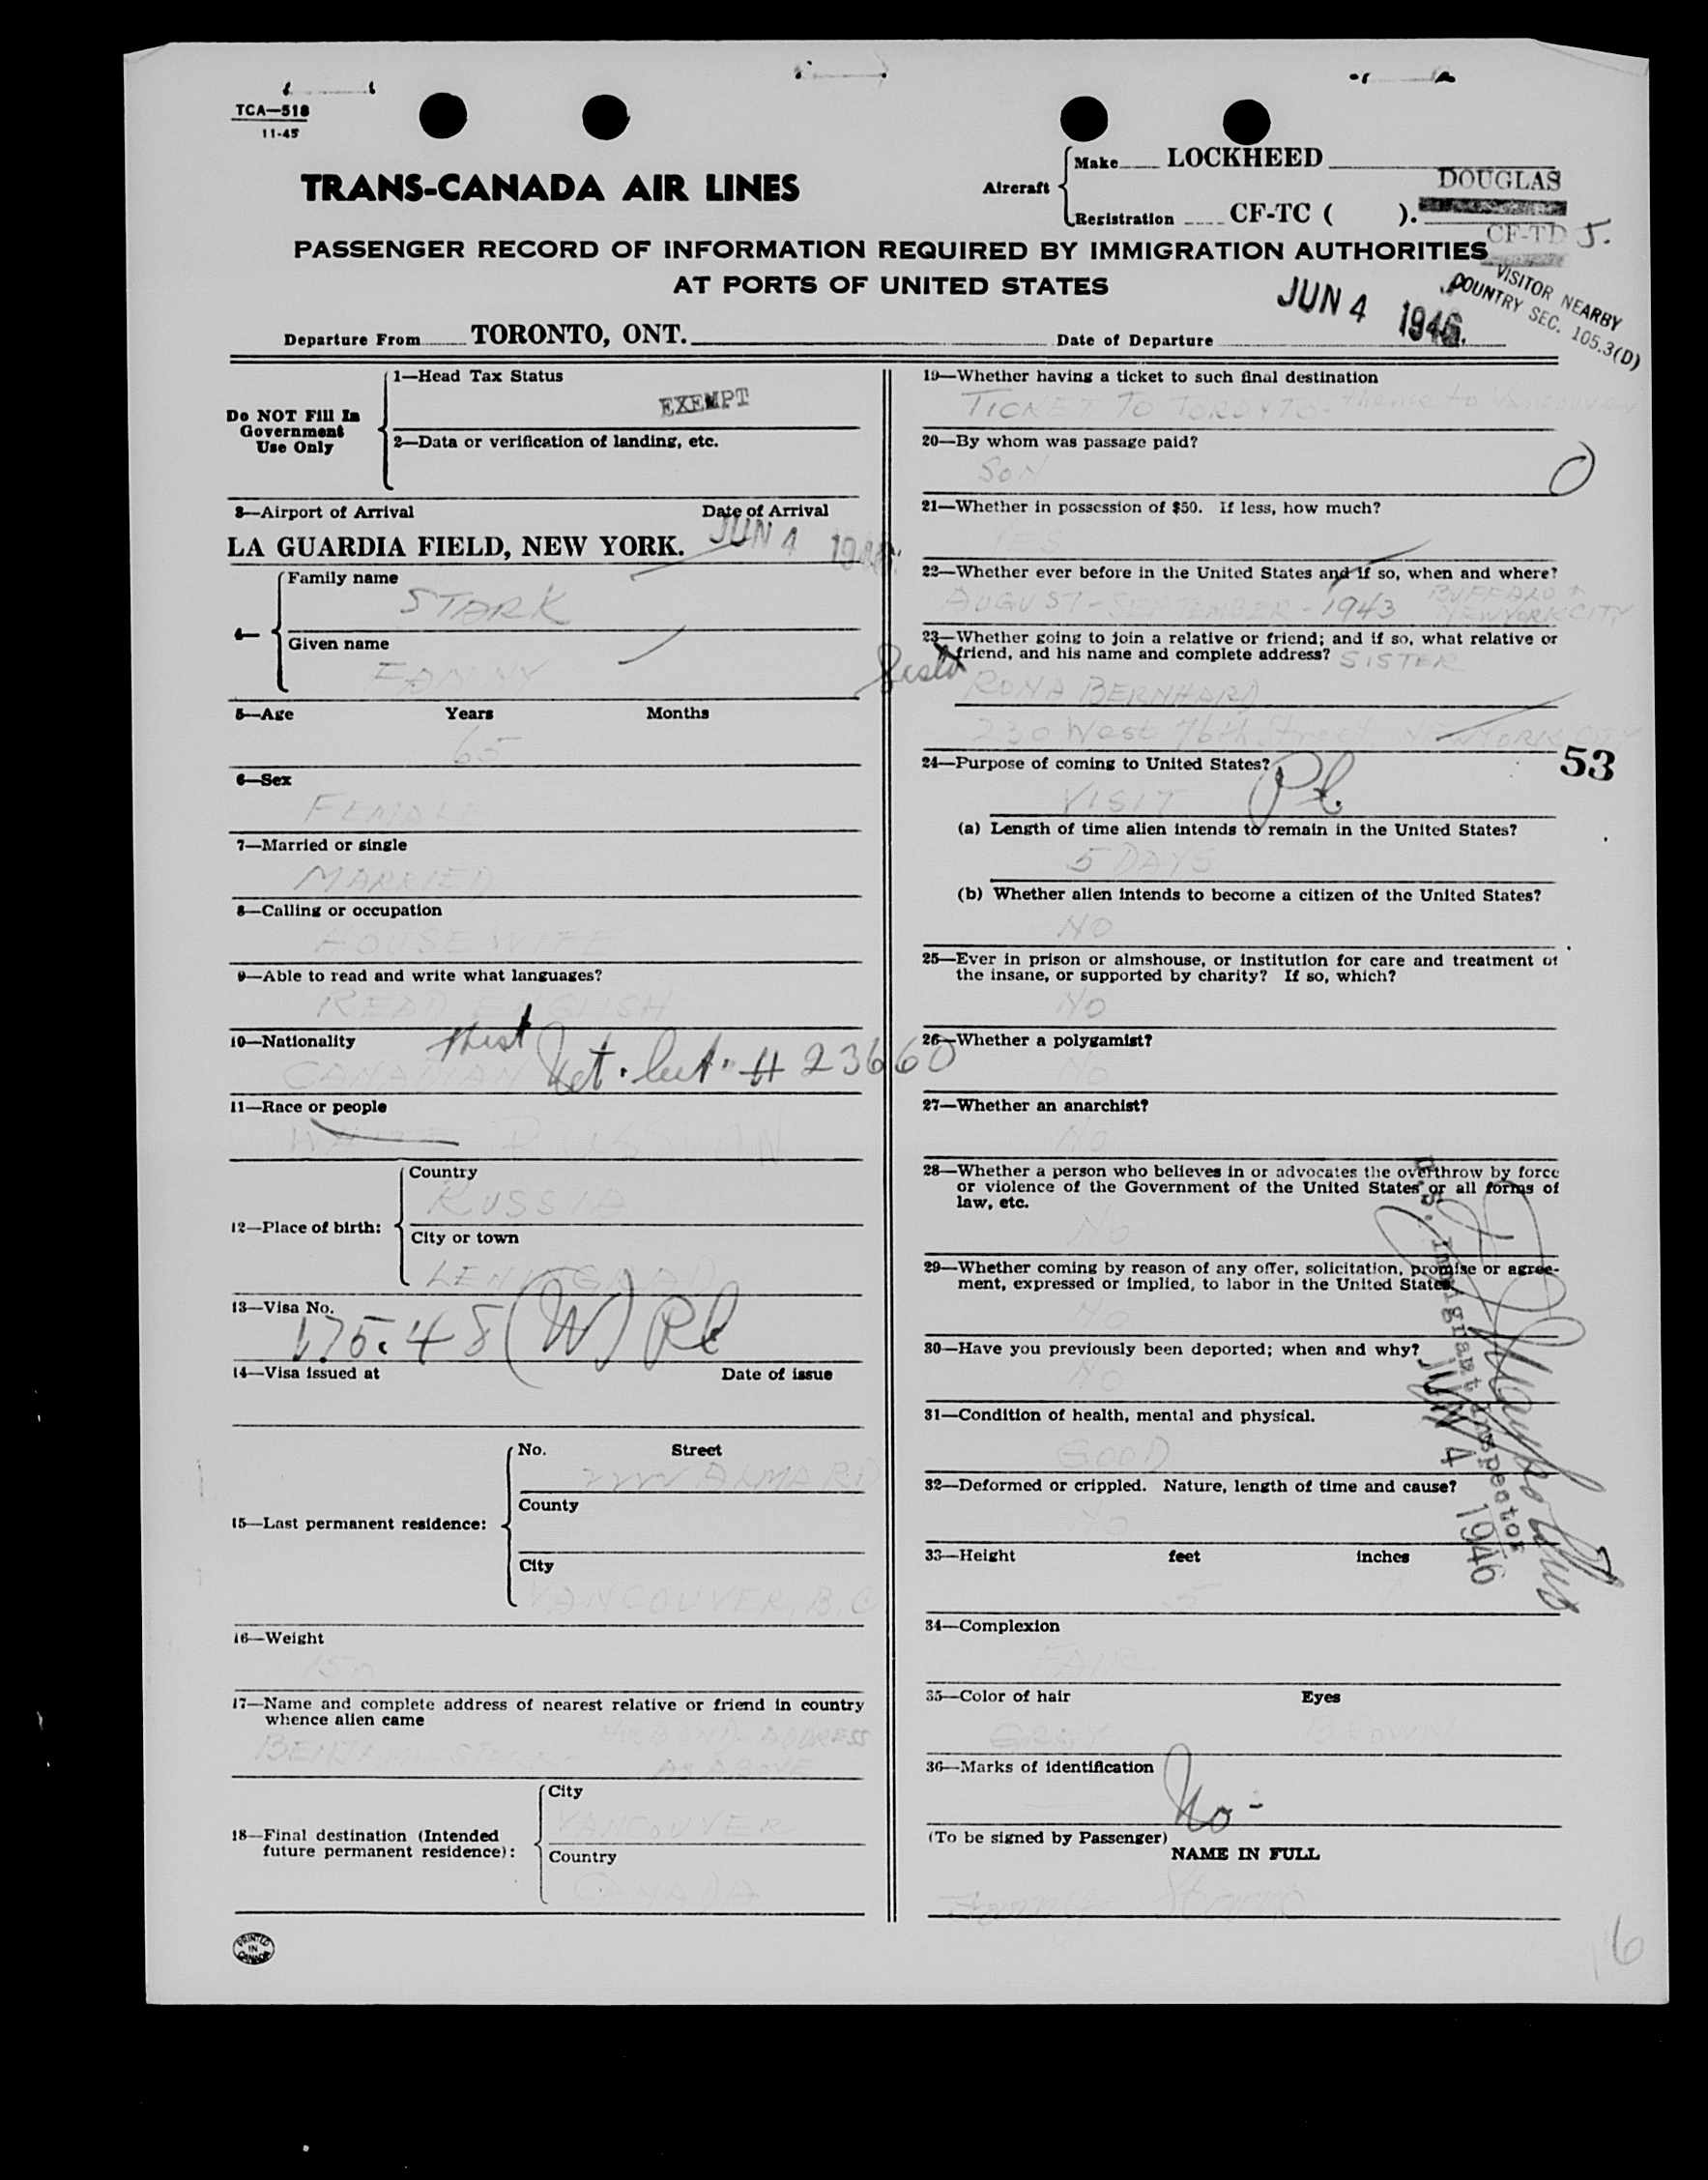 TCA—518
11-45
TRANS-CANADA AIR LINES
Aircraft
Make LOCKHEED
DOUGLAS
Registration CF-TC ( ).
CF-TD 5.
PASSENGER RECORD OF INFORMATION REQUIRED BY IMMIGRATION AUTHORITIES
AT PORTS OF UNITED STATES
VISITOR NEARBY
COUNTRY SEC. 105.3(D)
Departure From TORONTO, ONT. Date of Departure JUN 4 1946
Do NOT Fill In
Government
Use Only
1—Head Tax Status
EXEMPT
2—Data or verification of landing, etc.
3—Airport of Arrival Date of Arrival
LA GUARDIA FIELD, NEW YORK. JUN 4 1946
4—
Family name
STARK
Given name
FANNY
5—Age Years Months
65
6—Sex
FEMALE
7—Married or single
MARRIED
8—Calling or occupation
HOUSEWIFE
9—Able to read and write what languages?
READ ENGLISH
10—Nationality
CANADIAN # 23660
11—Race or people
RUSSIAN
12—Place of birth:
Country
RUSSIA
City or town
LENINGRAD
13—Visa No.
175.48 (W) Pl
14—Visa issued at Date of issue
15—Last permanent residence:
No. Street
ALMA RD
County
City
VANCOUVER, B.C
16—Weight
17—Name and complete address of nearest relative or friend in country
whence alien came
HUSBAND ADDRESS
AS ABOVE
18—Final destination (Intended
future permanent residence):
City
VANCOUVER
Country
CANADA
PRINTED
IN
CANADA
19—Whether having a ticket to such final destination
TICKET TO TORONTO - thence to Vancouver
20—By whom was passage paid?
SON
0
21—Whether in possession of $50. If less, how much?
YES
22—Whether ever before in the United States and if so, when and where?
AUGUST - SEPTEMBER - 1943 BUFFALO +
NEW YORK CITY
23—Whether going to join a relative or friend; and if so, what relative or
friend, and his name and complete address? SISTER
RONA BERNHARD
230 West 76th Street NEW YORK CITY
53
24—Purpose of coming to United States?
VISIT Pl.
(a) Length of time alien intends to remain in the United States?
5 DAYS
(b) Whether alien intends to become a citizen of the United States?
NO
25—Ever in prison or almshouse, or institution for care and treatment of
the insane, or supported by charity? If so, which?
NO
26—Whether a polygamist?
NO
27—Whether an anarchist?
NO
28—Whether a person who believes in or advocates the overthrow by force
or violence of the Government of the United States or all forms of
law, etc.
NO
29—Whether coming by reason of any offer, solicitation, promise or agree-
ment, expressed or implied, to labor in the United States?
NO
30—Have you previously been deported; when and why?
NO
U.S. Immigrant Inspector
JUN 4 1946
31—Condition of health, mental and physical.
GOOD
32—Deformed or crippled. Nature, length of time and cause?
NO
33—Height feet inches
5
34—Complexion
FAIR
35—Color of hair Eyes
GREY BROWN
36—Marks of identification
No -
(To be signed by Passenger)
NAME IN FULL
Stark
6